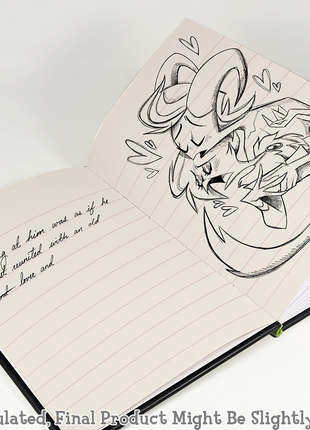 at him was as if he
reunited with an old
lover and
ulated, Final Product Might Be Slightly